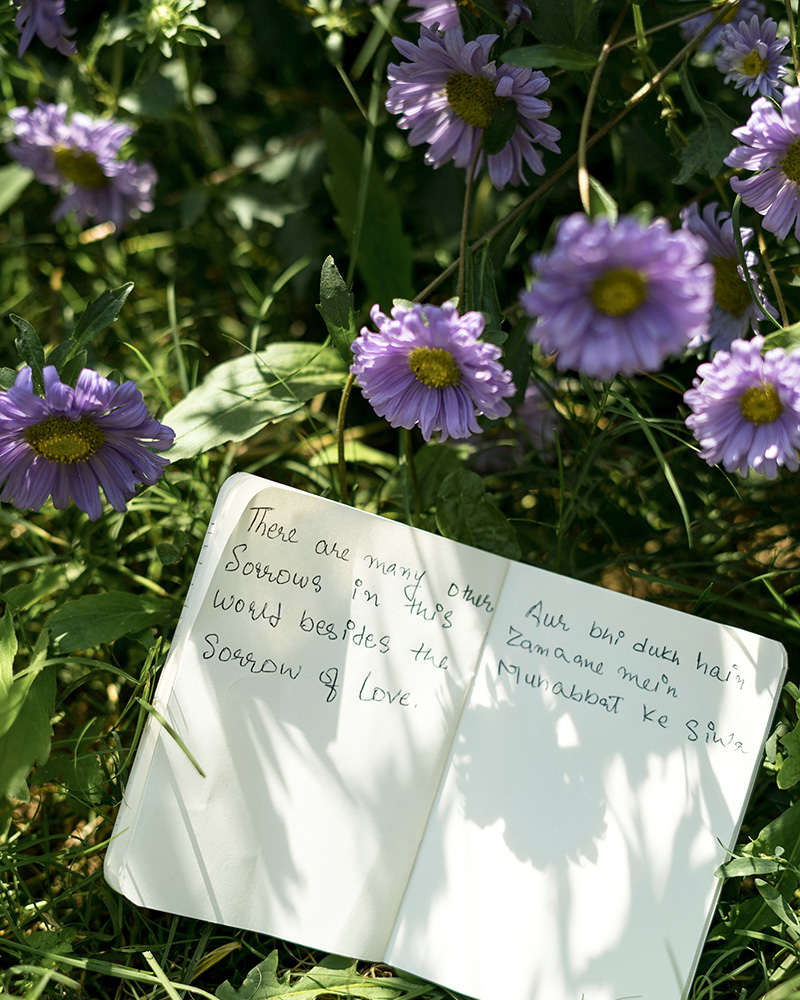 There are many other
Sorrows in this
world besides the
Sorrow of Love.
Aur bhi dukh hain
Zamaane mein
Muhabbat ke siwa